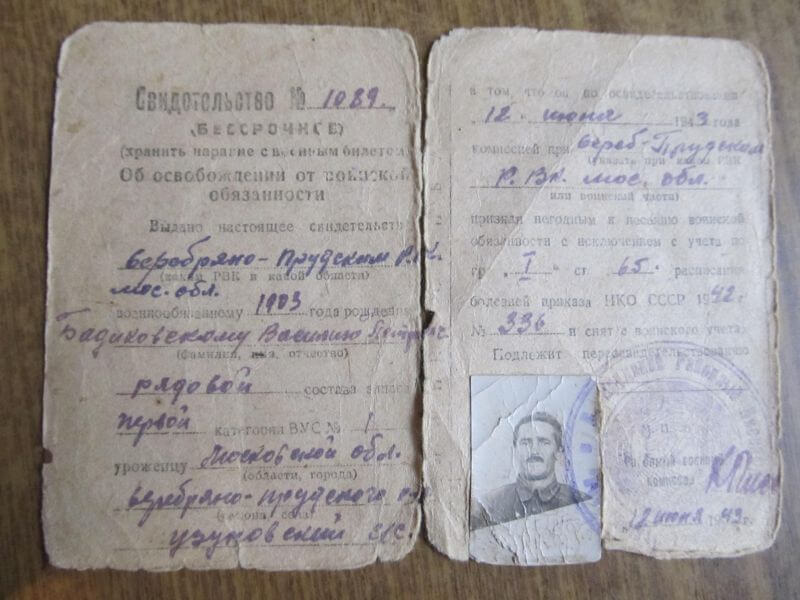 Свидетельство № 1089.
(БЕССРОЧНОЕ)
(хранить наравне с военным билетом)
Об освобождении от воинской
обязанности
Выдано настоящее свидетельств
Серебряно-Прудским Р.В.К.
(каким РВК и какой области)
мос. обл.
военнообязанному 1903 года рождения
Бадиковскому Василию Петрович
(фамилия, имя, отчество)
рядовой состава запаса
первой категории ВУС № 1
уроженцу Московской обл.
(области, города)
Серебряно-Прудского
(района, села)
Узуновский с/с.
в том, что он по освидетельствовании
"12" июня 1943 года
комиссией при Сереб-Прудском
(указать при каком РВК
Р.В.К. мос. обл.
или воинской части)
признан негодным к несению воинской
обязанности с исключением с учета по
гр. "I" ст 65. расписания
болезней приказа НКО СССР 1942 г.
№ 336 и снят с воинского учета.
Подлежит переосвидетельствованию
М. П.
Районный военный
комиссар
"12 июня 1943 г.